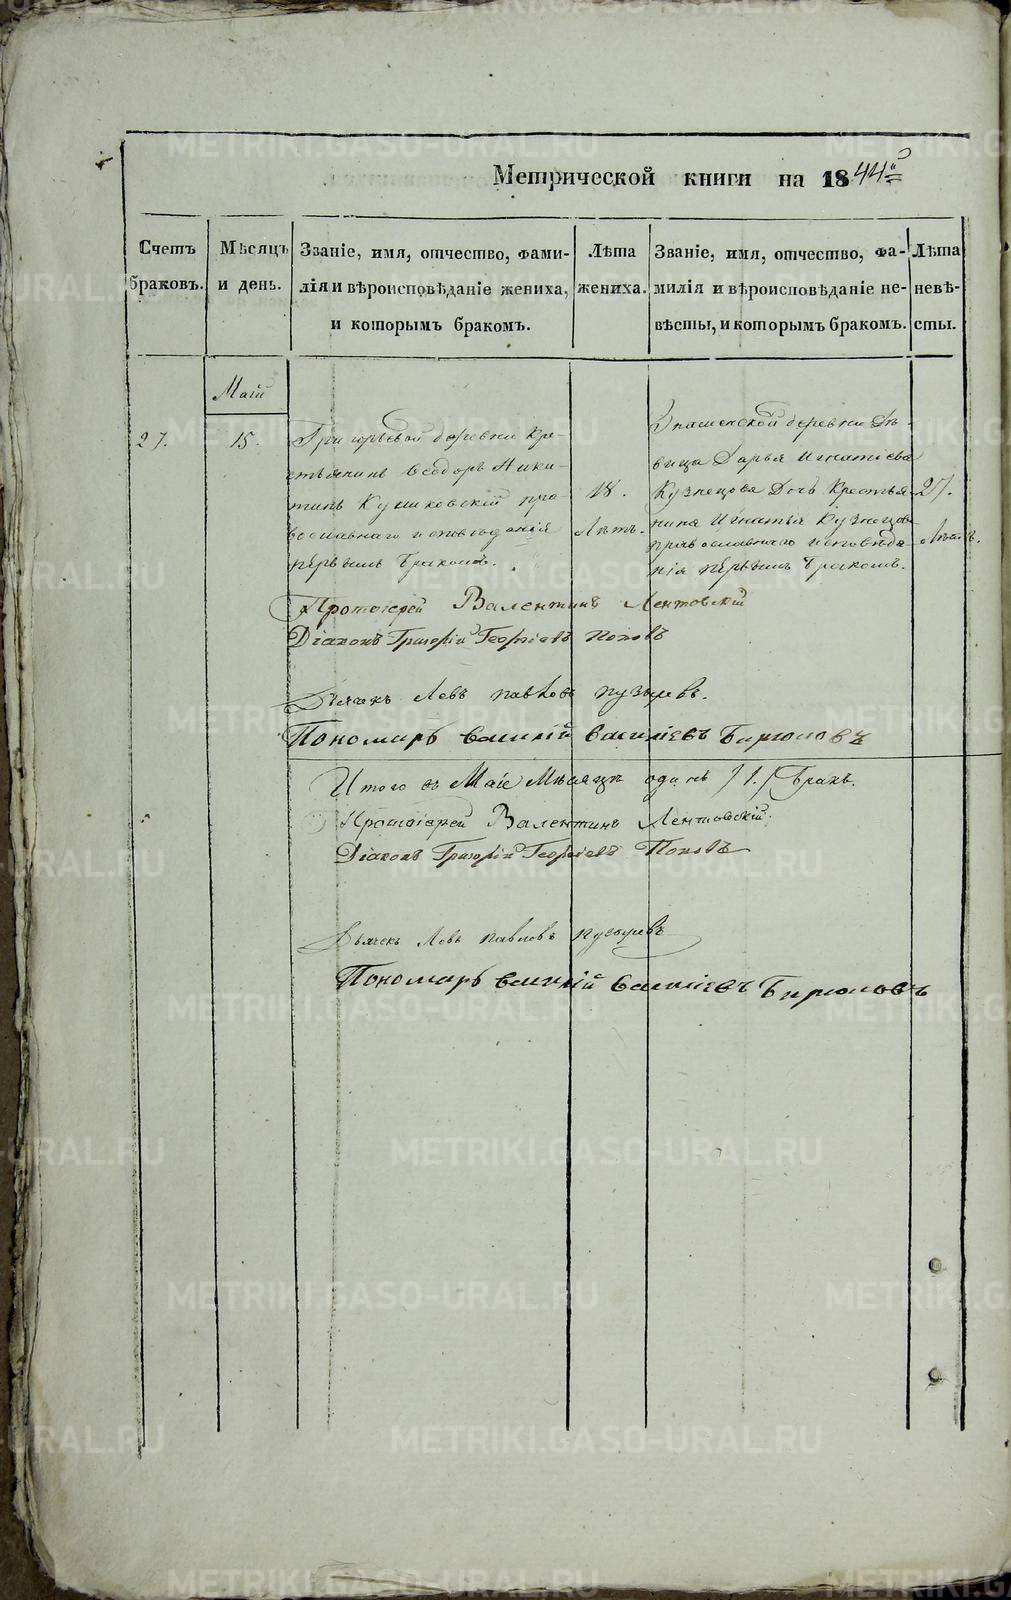 Метрической книги на 1844й
Счетъ браковъ.
Мѣсяцъ и день.
Званіе, имя, отчество, фами-
лія и вѣроисповѣданіе жениха,
и которымъ бракомъ.
Лѣта
жениха.
Званіе, имя, отчество, фа-
милія и вѣроисповѣданіе не-
вѣсты, и которымъ бракомъ.
Лѣта
невѣ-
сты.
Маій
27.
15.
Григорьевой деревни кре-
стьянинъ Ѳеодоръ Ники-
тинъ
православнаго исповѣданія
первымъ бракомъ.
18.
Лѣтъ.
деревни дѣ-
вица Дарья Игнатіева
Кузнецова Дочь Крестья-
нина Игнатья Кузнецова
православнаго исповѣда-
нія первымъ бракомъ.
27.
Лѣтъ.
Протоіерей Валентинъ Лентовскій
Діаконъ Григорій Георгіевъ Поповъ
Дьячекъ Левъ Павловъ Пузыревъ.
Пономарь Василій Василіевъ Бирюковъ
Итого въ Маіе Мѣсяцѣ одинъ /1./ бракъ.
Протоіерей Валентинъ Лентовскій.
Діаконъ Григорій Георгіевъ Поповъ
Дьячекъ Левъ Павловъ Пузыревъ
Пономарь Василій Василіевъ Бирюковъ
METRIKI.GASO-URAL.RU